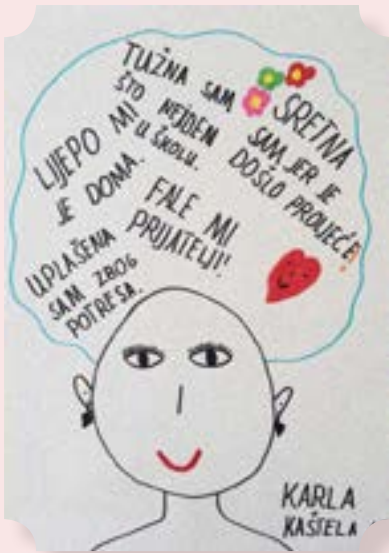 TUŽNA SAM
ŠTO NEJDEM
U ŠKOLU.
SRETNA
SAM JER JE
DOŠLO PROLJEĆE!
LIJEPO MI
JE DOMA.
FALE MI
PRIJATELJI!
UPLAŠENA
SAM ZBOG
POTRESA.
KARLA
KAŠTELA